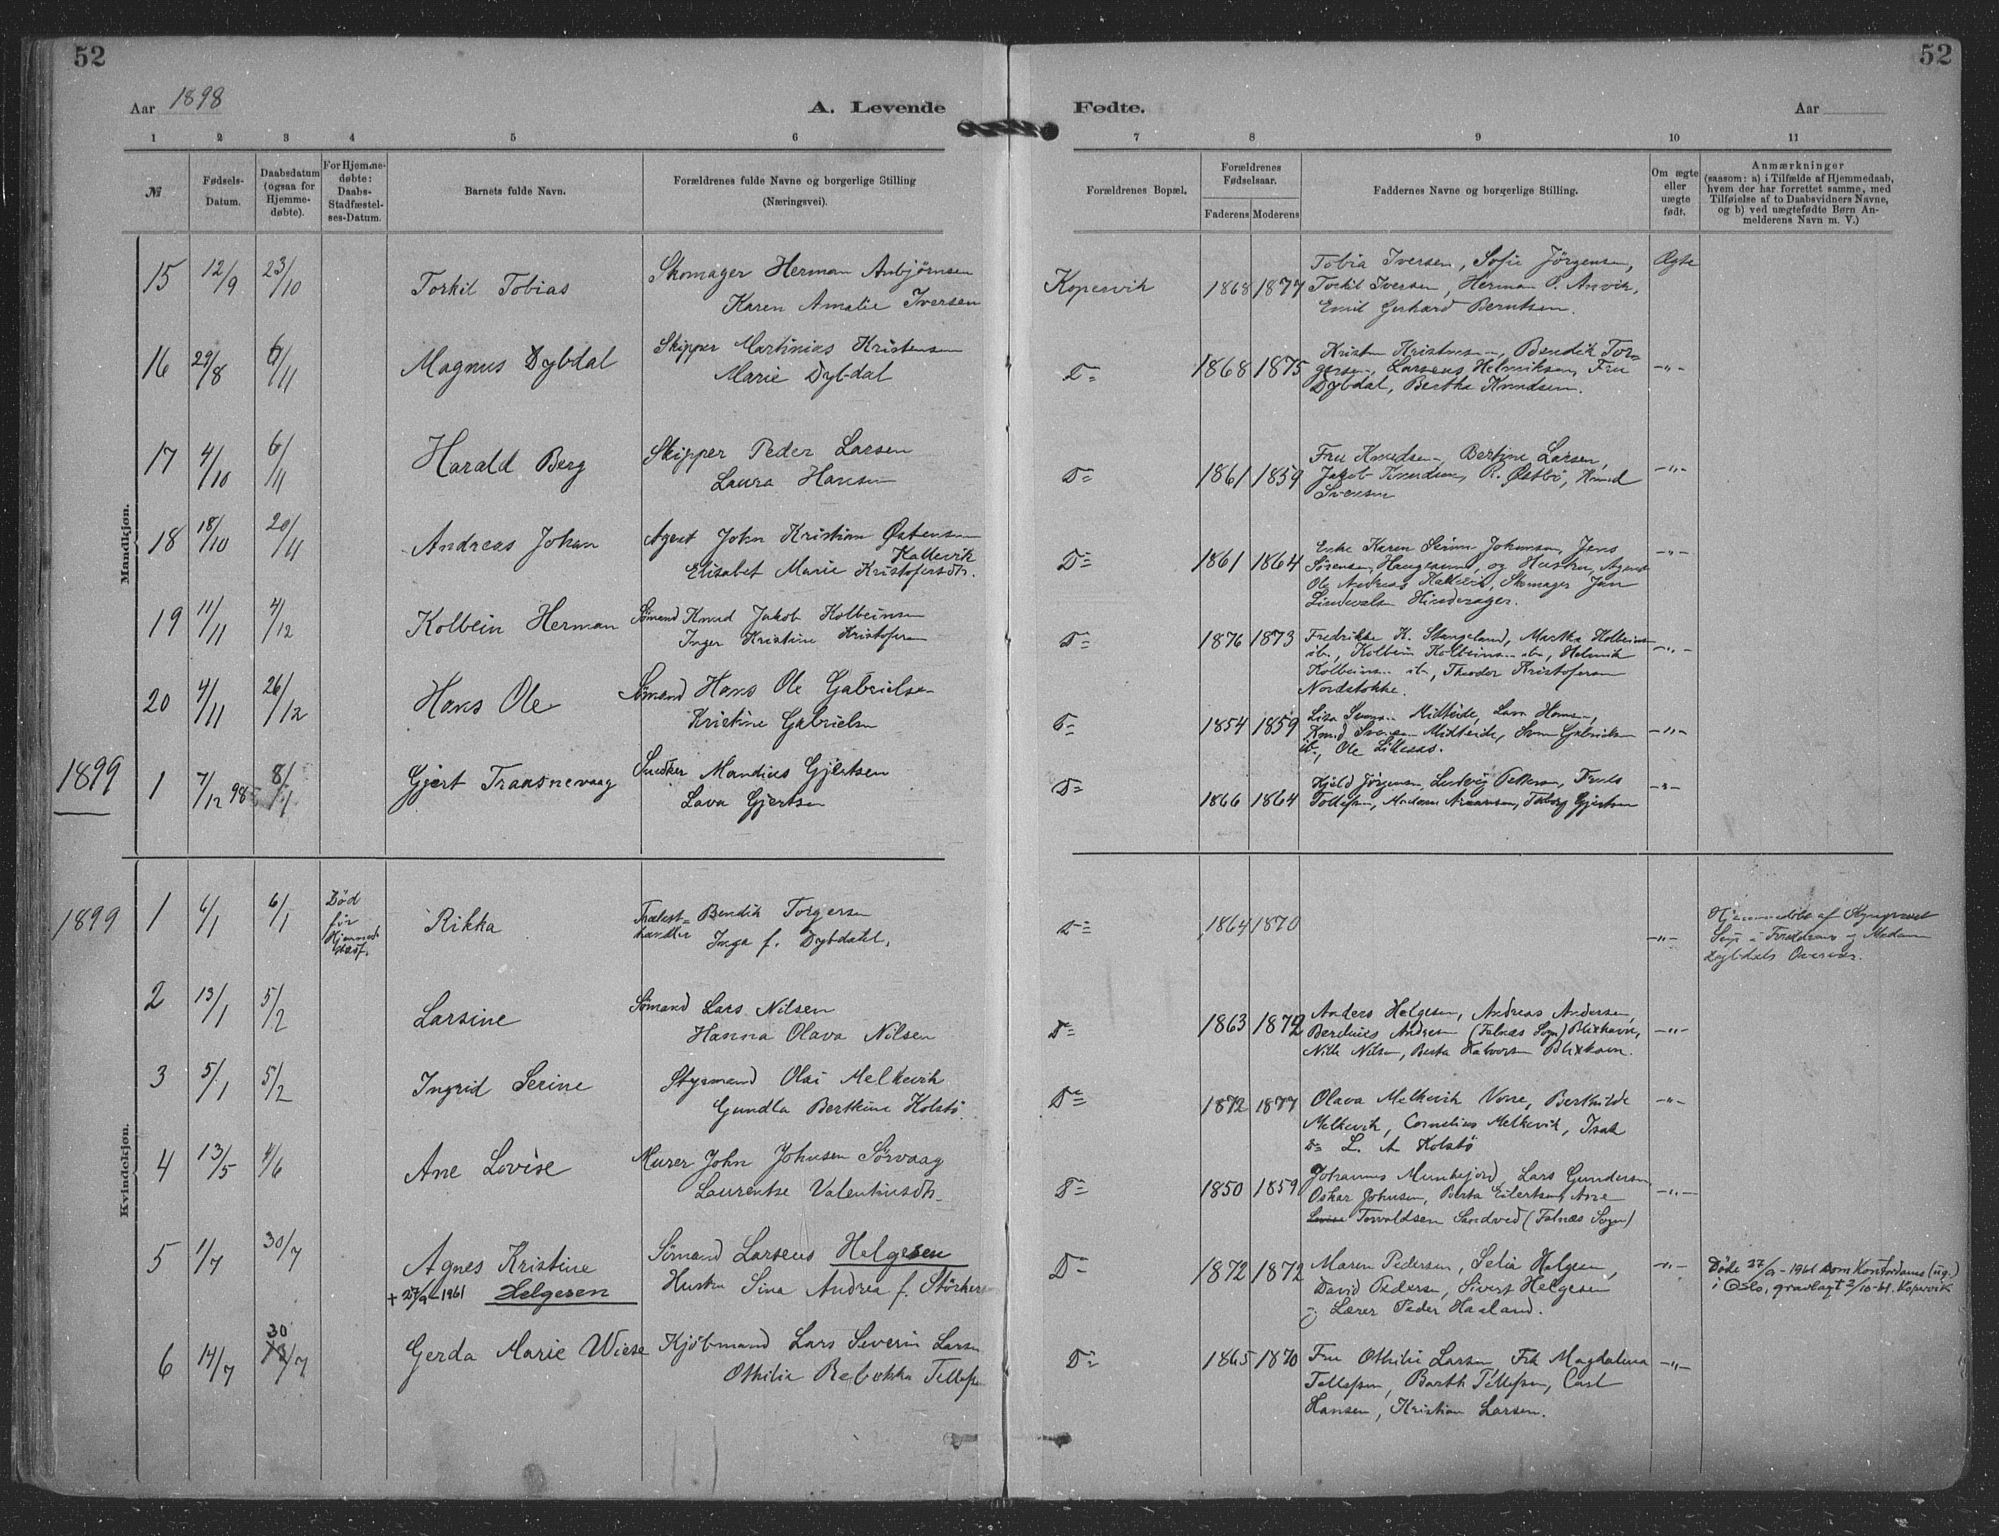 52
52
Aar 1898
A. Levende
Fødte.
Aar
1 2 3 4 5 6 7 8 9 10 11
№
Fødsels-Datum.
Daabsdatum (ogsaa for Hjemme-døbte).
For Hjemme-døbte: Daabs-Stadfæstel-ses-Datum.
Barnets fulde Navn.
Forældrenes fulde Navne og borgerlige Stilling
(Næringsvei).
Forældrenes Bopæl.
Forældrenes Fødselsaar.
Faderens Moderens
Faddernes Navne og borgerlige Stilling.
Om ægte eller uægte født.
Anmærkninger
(saasom: a) i Tilfælde af Hjemmedaab,
hvem der har forrettet samme, med
Tilføielse af to Daabsvidners Navne,
og b) ved uægtefødte Børn An-
melderens Navn m. V.)
Mandkjøn.
15 12/9 23/10 Torkil Tobias
Skomager Herman Anbjørnsen
Karen Amalie Iversen
Kopervik 1868 1877
Tobia Iversen, Sofie Jørgensen,
Torkil Iversen, Herman O. Anvik,
Emil Gerhard Berntsen.
Ægte
16 29/8 6/11 Magnus Dybdal
Skipper Martinius Kristensen
Marie Dybdal
D= 1868 1875
Kristen Kristensen, Bendik Tor-
gersen, Larsens Helmiksen, Fru
Dybdal, Bertha Knudsen.
-"-
17 4/10 6/11 Harald Berg
Skipper Peder Larsen
Laura Hansen
D= 1861 1859
Fru Knudsen, Bertine Larsen,
Jakob Knudsen, R. Østbø, Knud
Svensen
-"-
18 18/10 20/11 Andreas Johan
Agent John Kristian Østensen
Kallevik
Elisabet Marie Kristofersdtr.
D= 1861 1864
Enke Karen Serine Johansen, Jens
Sørensen, Haugesund, og Hustru, Agent
Ole Andreas Kallevik, Skomager Jan
Hinderager.
-"-
19 11/11 4/12 Kolbein Herman
Sømand Knud Jakob Kolbeinsen
Inger Kristine Kristofersen
D= 1876 1873
Fredrikke K. Stangeland, Martha Kolbeins
ib., Kolbein Kolbeins ib., Helmik
Kolbeins ib., Theodor Kristofersen
Nordstokke.
-"-
20 4/11 26/12 Hans Ole
Sømand Hans Ole Gabrielsen
Kristine Gabrielsen
D= 1854 1859
Midteide, Lava Hansen,
Knud Svensen Midteide, Sven Gabrielsen
ib., Ole
-"-
1899
1 7/12 98 8/1 Gjert Traasnevaag
Snedker Mandius Gjertsen
Lava Gjertsen
D= 1866 1864
Kjeld Jørgensen, Ludvig Pettersen,
Tollefsen, Madame Gjertsen
-"-
Kvindekjøn.
1899
1 6/1 6/1
Død
før
Hjemmed.
stadf.
Rikka
Trælast=
handler Bendik Torgersen
Inga f. Dybdahl.
D= 1864 1870
-"-
Hjemmedøbt af
og Madam
Dybdals Overvær.
2 13/1 5/2 Larsine
Sømand Lars Nilsen
Hanna Olava Nilsen
D= 1863 1872
Anders Helgesen, Andreas Andersen,
Andersen (Falnæs Sogn) Blikhavn,
Nils Nilsen, Berta Halvorsen Blikhavn.
-"-
3 5/1 5/2 Ingrid Serine
Styrmand Olai Melkevik
Gundla Bertine Kolstø.
D= 1872 1877
Olava Melkevik Vorre, Berthilde
Melkevik, Cornelius Melkevik, Isak
D= L. A. Kolstø
-"-
4 13/5 4/6 Ane Lovise
Murer John Johnsen Sørvaag
Laurentse Valentinsdtr.
D= 1850 1859
Johannes Munkejord, Lars Gundersen
Oskar Johnsen, Berta Eilertsen, Ane
Lovise Torvaldsen Sandved (Falnæs Sogn)
-"-
5 1/7 30/7 Agnes Kristine
+ 27/9-1961 Helgesen
Sømand Larsens Helgesen
Hustru Sina Andrea f. Størkersen
D= 1872 1872
Maren Pedersen, Selia Helgesen,
David Pedersen, Sivert Helgesen
og Lærer Peder Haaland.
-"-
Døde 27/9-1961 som Kontordame (ug.)
i Oslo, gravlagt 2/10-61. Kopervik
6 14/7 30/7 Gerda Marie Wiese
Kjøbmand Lars Severin Larsen
Othilie Rebekka Tellefsen
D= 1865 1870
Fru Othilie Larsen, Frk Magdalena
Tellefsen, Barth Tellefsen, Carl
Hansen, Kristian Larsen.
-"-